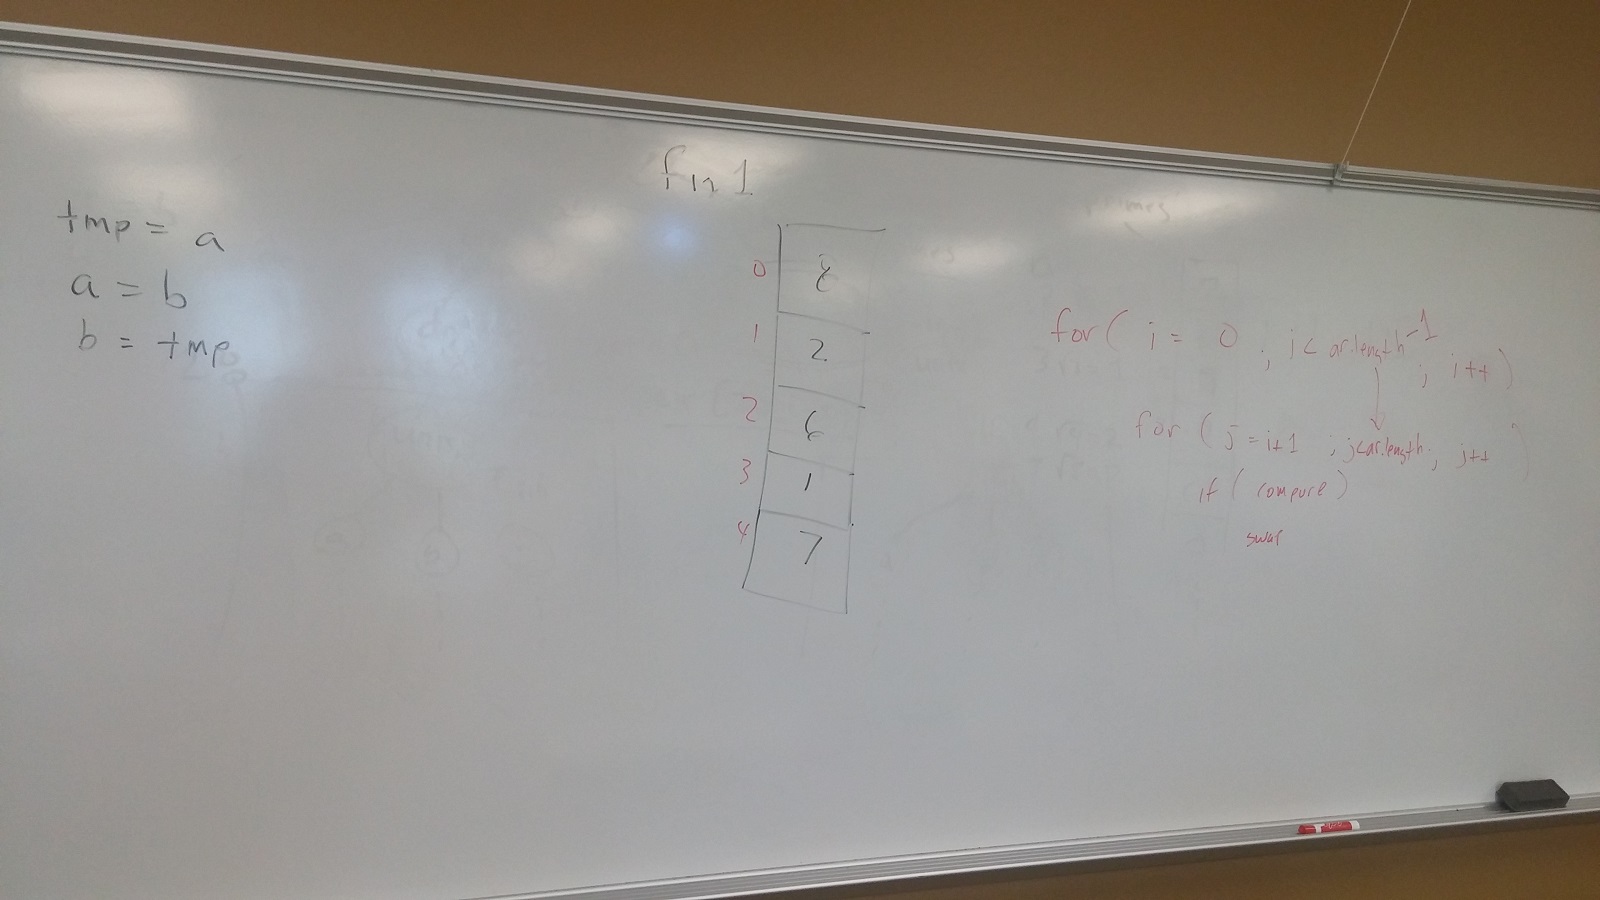 fn 1
tmp = a
a = b
b = tmp
0 8
1 2
2 6
3 1
4 7
for ( i = 0 ; i < ar.length -1 ; i++ )
for ( j = i+1 ; j<ar.length ; j++ )
if ( compare )
swap
primes